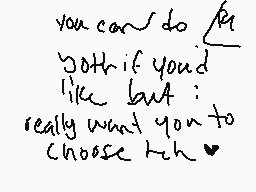 you can do
both if you'd
like but i
really want you to
choose heh ♥